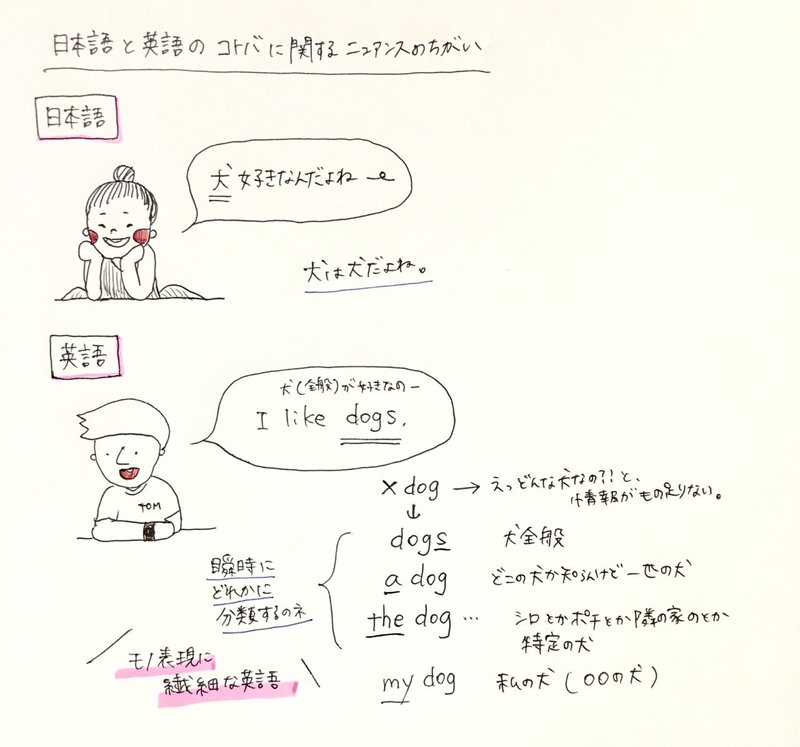 日本語と英語の コトバに関する ニュアンスのちがい
日本語
犬好きなんだよねー
犬は犬だよね。
英語
犬(全般)が好きなのー
I like dogs.
TOM
× dog → えっどんな犬なの?!と、
情報がもの足りない。
↓
dogs 犬全般
a dog どこの犬か知らんけど一匹の犬
the dog … シロとかポチとか隣の家のとか
特定の犬
my dog 私の犬(〇〇の犬)
瞬時に
どれかに
分類するのネ
モノ表現に
繊細な英語